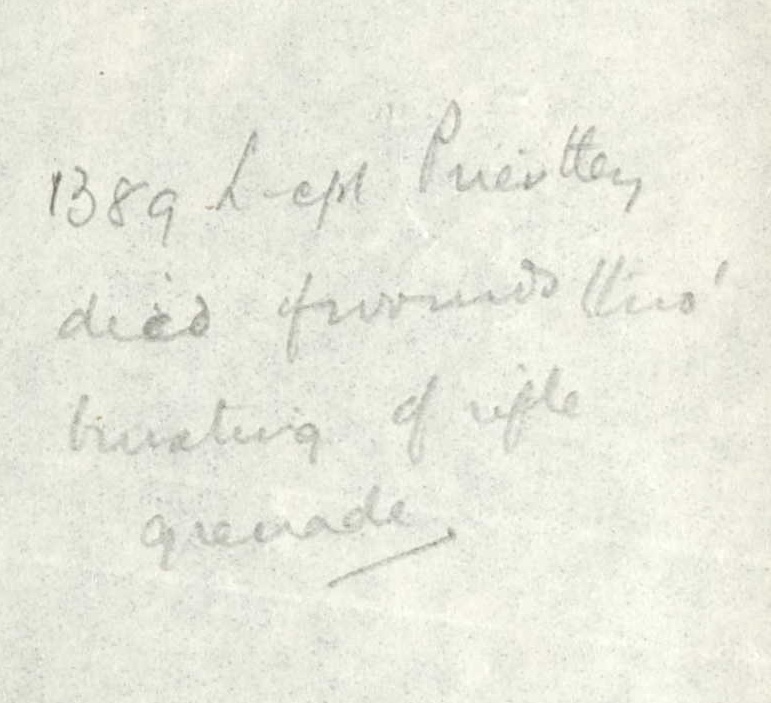 1389 L-cpl Priestley
died of wounds thro'
bursting of rifle
grenade